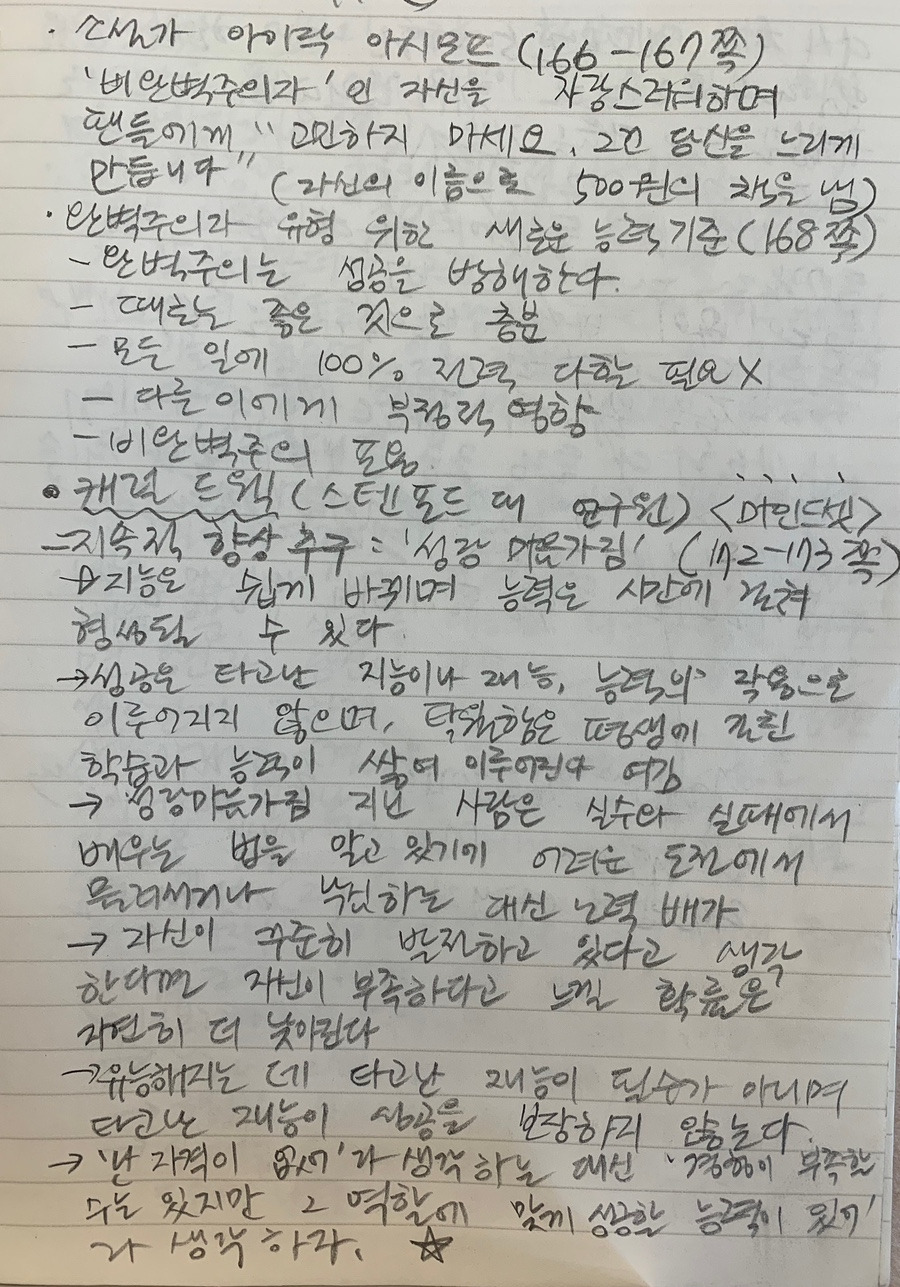 · 소설가 아이작 아시모프 (166-167쪽)
'비완벽주의자'인 자신을 자랑스러워하며
팬들에게 "고민하지 마세요. 그건 당신을 느리게
만듭니다" (자신의 이름으로 500권의 책을 냄)
· 완벽주의자 유형 위한 새로운 능력 기준 (168쪽)
- 완벽주의는 성공을 방해한다.
- 때로는 좋은 것으로 충분
- 모든 일에 100% 전력 다할 필요 X
- 다른 이에게 부정적 영향
- 비완벽주의 포용.
• 캐럴 드웩 (스텐포드 대 연구원) <마인드셋>
- 지속적 향상 추구 : '성장 마음가림' (172-173쪽)
→ 지능은 쉽게 바뀌며 능력은 시간에 걸쳐
형성될 수 있다.
→ 성공은 타고난 지능이나 재능, 능력의 작용으로
이루어지지 않으며, 탁월함은 평생에 걸친
학습과 능력이 쌓여 이루어진다 여김
→ 성장마음가림 지닌 사람은 실수와 실패에서
배우는 법을 알고 있기에 어려운 도전에서
물러서거나 낙심하는 대신 노력 배가
→ 자신이 꾸준히 발전하고 있다고 생각
한다면 자신이 부족하다고 느낄 확률은
자연히 더 낮아린다
→ 유능해지는 데 타고난 재능이 필수가 아니며
타고난 재능이 성공을 보장하지 않는다.
→ '난 자격이 없어'라 생각하는 대신 '경험이 부족할
수는 있지만 그 역할에 맞게 성공할 능력이 있어'
라 생각하라. ☆